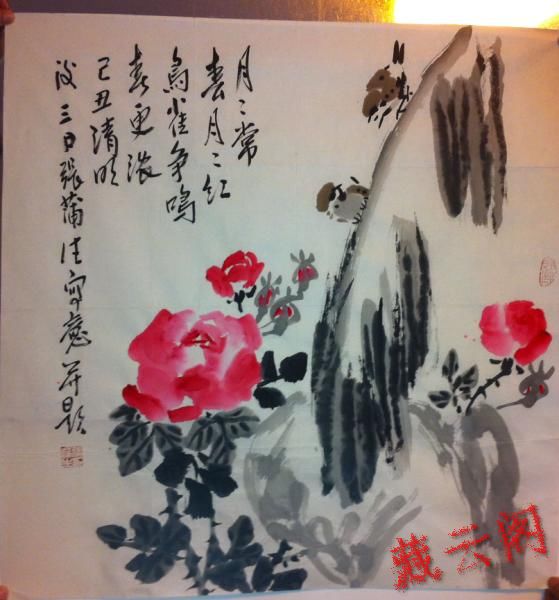 月〻常
春月〻红
鸟雀争鸣
春更浓
己丑清明
后三日张蒲生写意并题
藏云阁